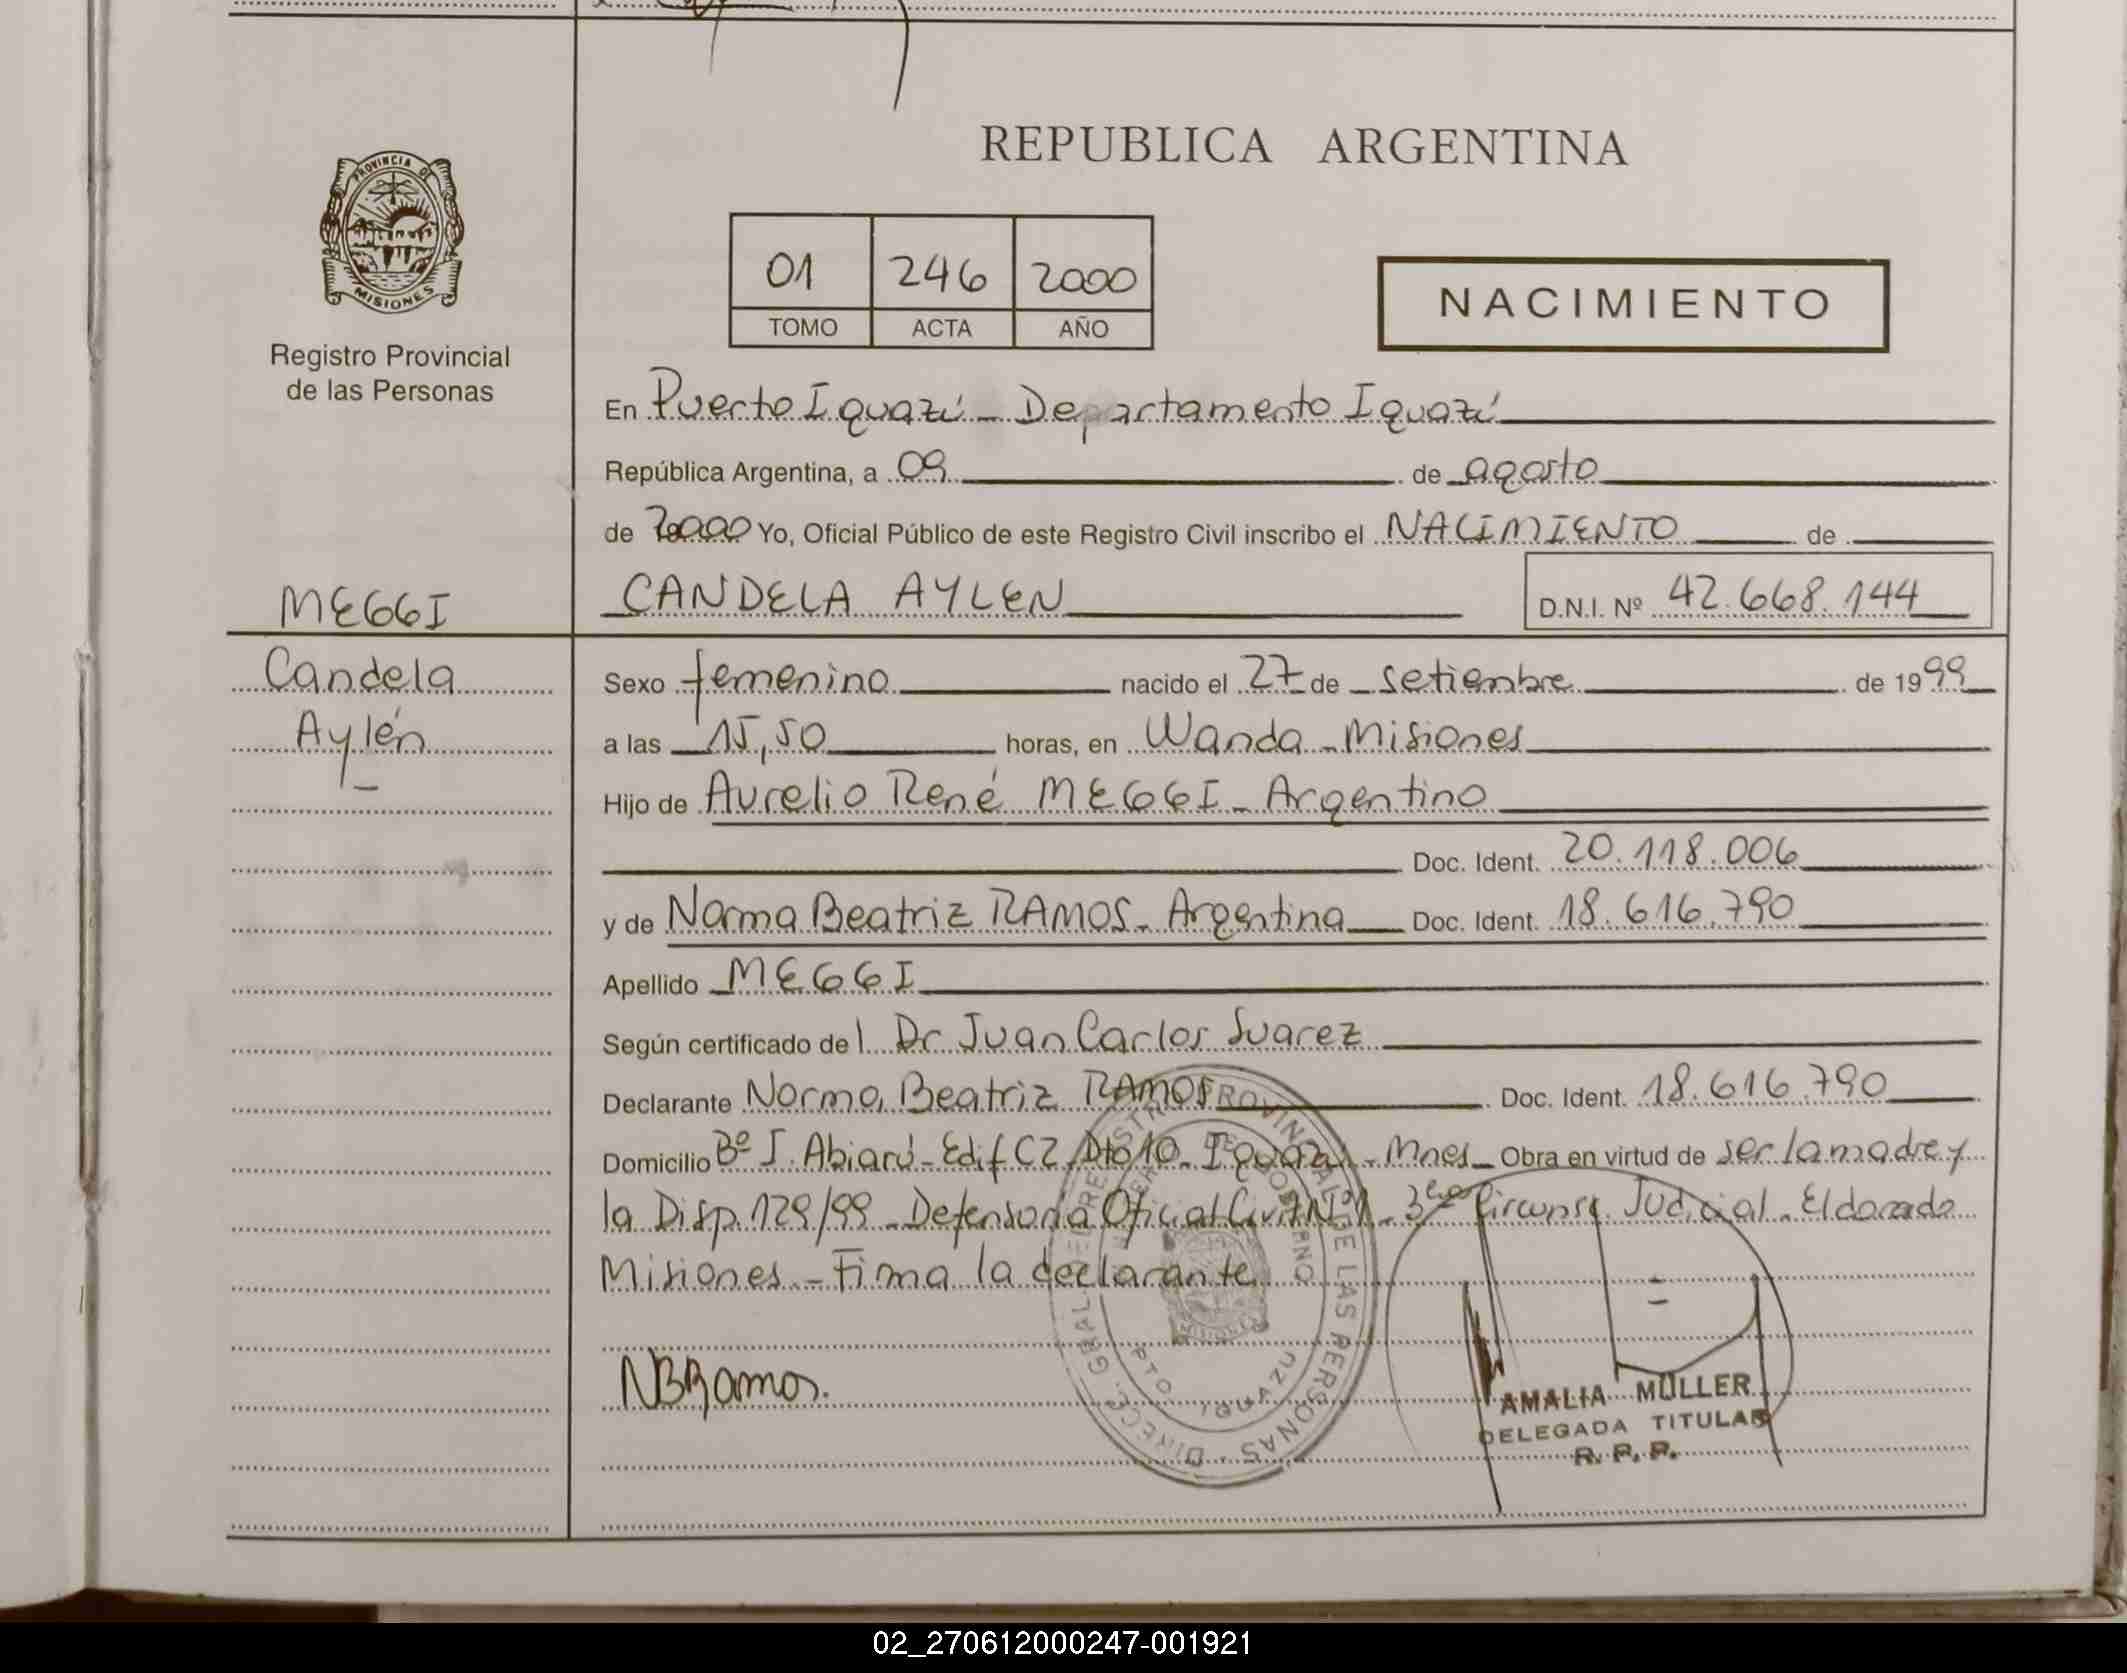 REPUBLICA ARGENTINA
PROVINCIA DE MISIONES
Registro Provincial
de las Personas
01 246 2000
TOMO ACTA AÑO
NACIMIENTO
En Puerto Iguazú - Departamento Iguazú
República Argentina, a 09 de agosto
de 2000 Yo, Oficial Público de este Registro Civil inscribo el NACIMIENTO de
MEGGI
CANDELA AYLEN D.N.I. Nº 42.668.144
Candela
Aylén
Sexo femenino nacido el 27 de setiembre de 1999
a las 15,50 horas, en Wanda - Misiones
Hijo de Aurelio René MEGGI - Argentino
Doc. Ident. 20.118.006
y de Norma Beatriz RAMOS - Argentina Doc. Ident. 18.616.790
Apellido MEGGI
Según certificado del Dr Juan Carlos Suarez
Declarante Norma Beatriz RAMOS Doc. Ident. 18.616.790
Domicilio Bº J. Abiarú - Edif C2 Dto 10 - Iguazú - Mnes - Obra en virtud de ser la madre y
la Disp. 129/99 - Defensoria Oficial Civil Nº 1 - 3era Circunsc. Judicial - Eldorado
Misiones - Firma la declarante
NBRamos.
DIRECC. GRAL. DE REGISTRO PROVINCIAL DE LAS PERSONAS
PTO. IGUAZU
AMALIA MULLER
DELEGADA TITULAR
R. P. P.
02_270612000247-001921